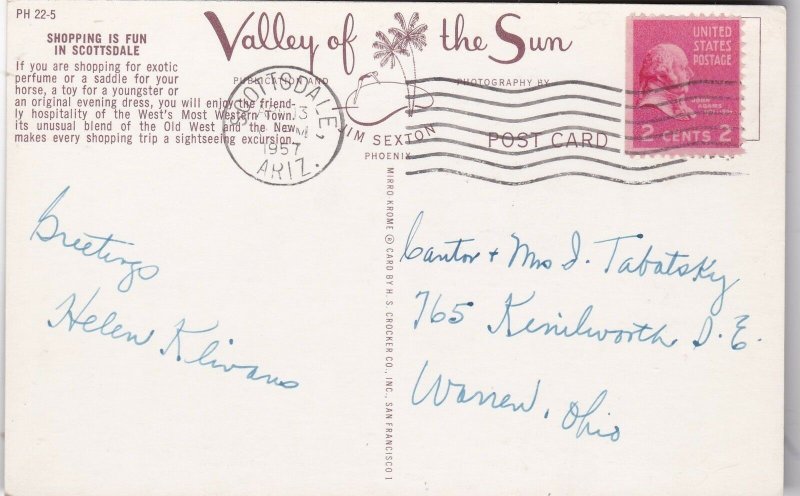 PH 22-5
SHOPPING IS FUN
IN SCOTTSDALE
If you are shopping for exotic
perfume or a saddle for your
horse, a toy for a youngster or
an original evening dress, you will enjoy the friend-
ly hospitality of the West's Most Western Town.
its unusual blend of the Old West and the New
makes every shopping trip a sightseeing excursion.
Valley of the Sun
PUBLICATION AND PHOTOGRAPHY BY
JIM SEXTON
PHOENIX
SCOTTSDALE,
13
1957
ARIZ.
POST CARD
UNITED
STATES
POSTAGE
JOHN
ADAMS
2 CENTS 2
MIRRO KROME ® CARD BY H. S. CROCKER CO., INC., SAN FRANCISCO 1
Greetings
Helen Klivans
Cantor + Mrs J. Tabatsky
765 Kenilworth S.E.
Warren, Ohio